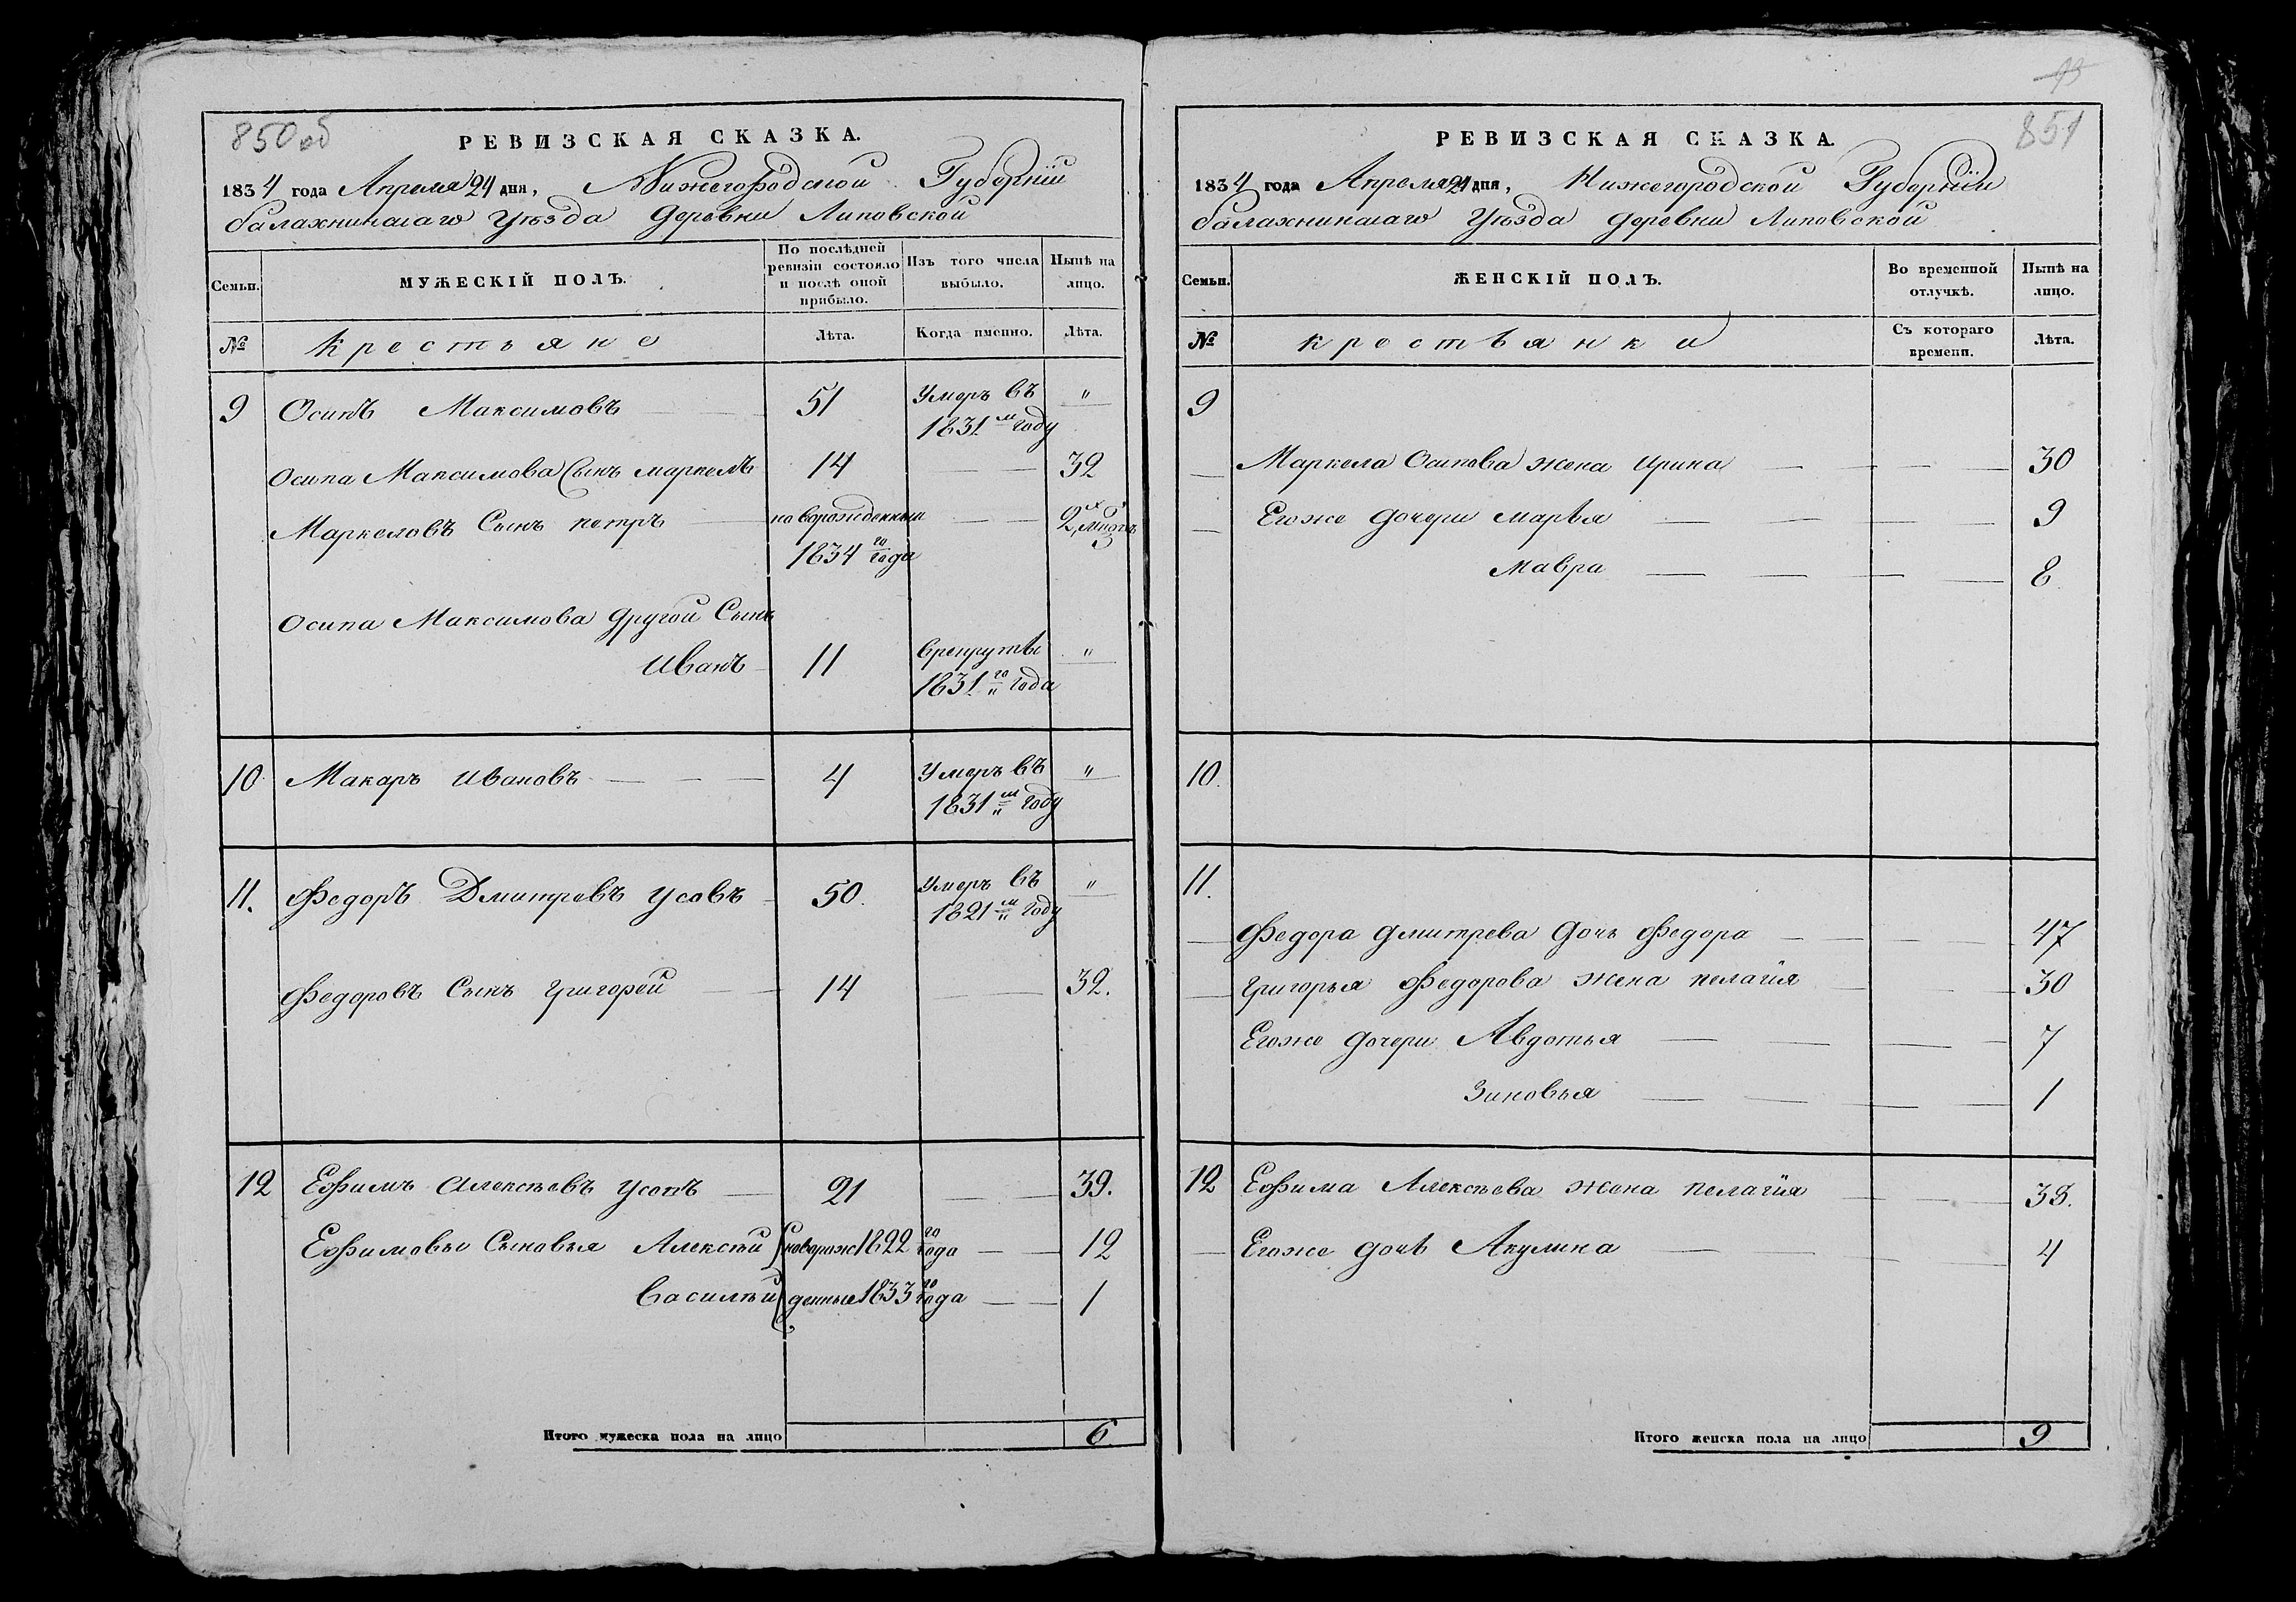 850 об
РЕВИЗСКАЯ СКАЗКА.
1834 года Апреля 24 дня, Нижегородской Губернiи
балахнинскаго Уѣзда деревни Липовской
Семьи.
МУЖЕСКІЙ ПОЛЪ.
По послѣдней ревизіи состояло и послѣ оной прибыло.
Изъ того числа выбыло.
Нынѣ на лицо.
№ крестьяне Лѣта. Когда именно. Лѣта.
9 Осипъ Максимовъ 51 Умеръ въ "
1831 м году
Осипа Максимова Сынъ маркелъ 14 32
Маркеловъ Сынъ петръ новорожденный 2х лнѣтъ
1834 го года
Осипа Максимова другой Сынъ
Иванъ 11 врекрутѣ "
1831 го года
10 Макаръ ивановъ 4 Умеръ въ "
1831 м году
11. Федоръ Дмитревъ усовъ 50. Умеръ въ "
1821 м году
Федоровъ Сынъ Григорей 14 32.
12 Ефимъ алексѣевъ усовъ 21 39.
Ефимовы Сыновья Алексѣй новорож 1822 го года 12
Василѣй денные 1833 го года 1
Итого мужеска пола на лицо 6
93
851
РЕВИЗСКАЯ СКАЗКА.
1834 года Апреля 24 дня, Нижегородской Губернiи
балахнинскаго Уѣзда деревни Липовской
Семьи.
ЖЕНСКІЙ ПОЛЪ.
Во временной отлучкѣ.
Нынѣ на лицо.
№ крестьянки Съ котораго времени. Лѣта.
9
Маркела Осипова жена ирина 30
Егоже дочери марья 9
мавра 8
10.
11.
Федора дмитрева дочь Федора 47
Григорья Федорова жена пелагiя 30
Егоже дочери Авдотья 7
Зиновья 1
12 Ефима Алексѣева жена пелагiя 38.
Егоже дочь Акулина 4
Итого женска пола на лицо 9